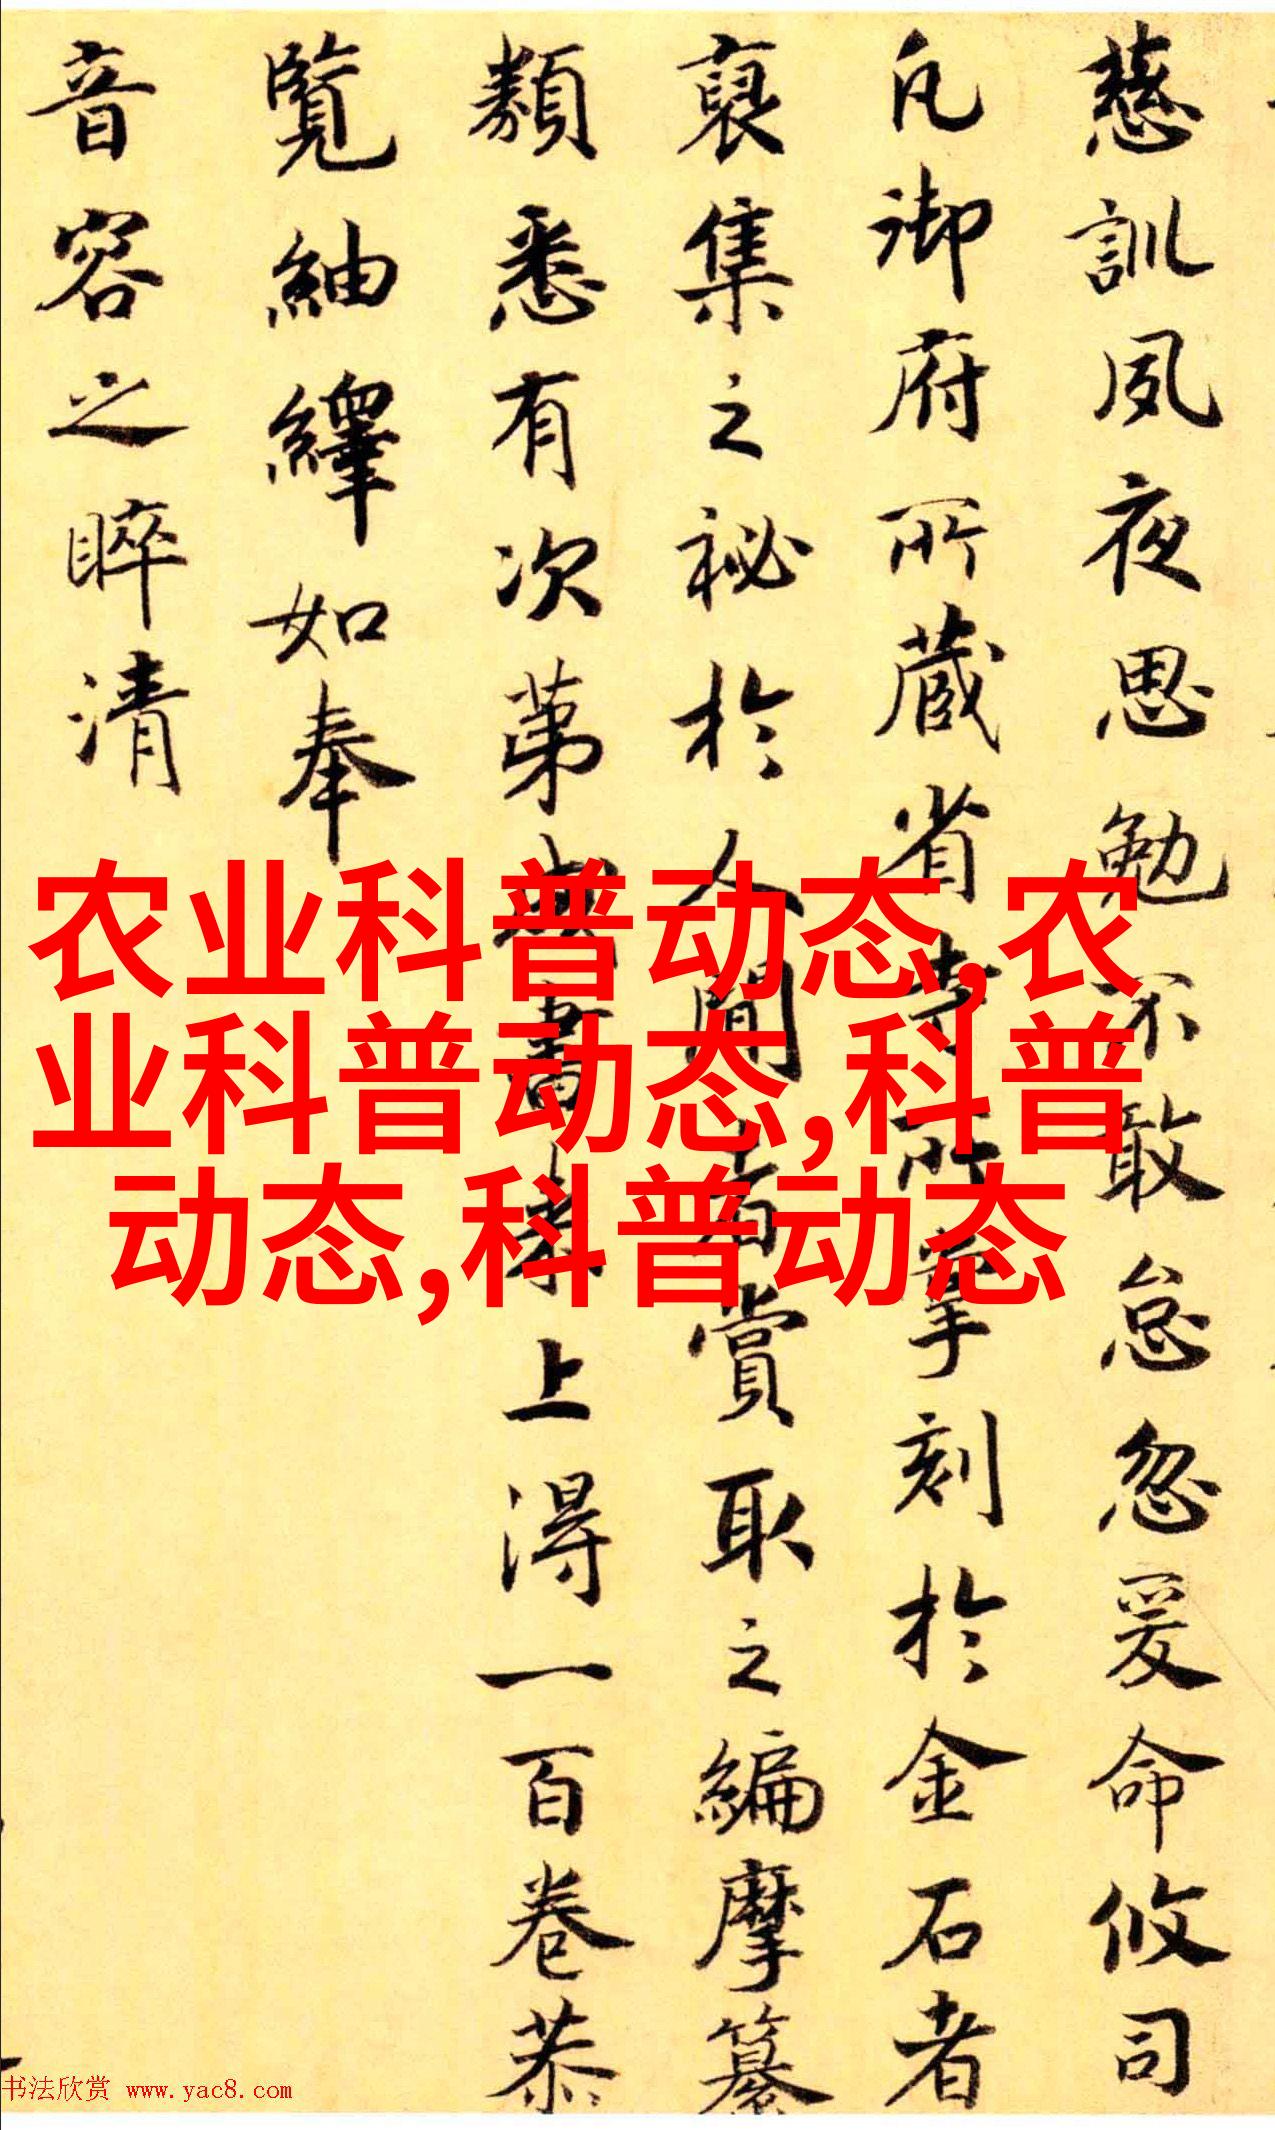 慈訓夙夜思勉不敢怠忽爰命攸司
凡御府所藏省寺所掌刻於金石者
裒集之祕於人間者賞取之編摩纂
類悉有次第典書來上得一百卷恭
覽紬繹如奉
音容之睟清
农业科普动态,农
业科普动态,科普
动态,科普动态
书法欣赏 www.yac8.com